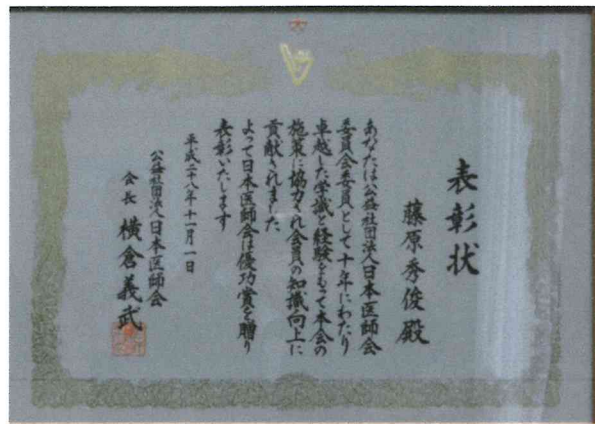 表彰状
藤原秀俊殿
あなたは公益社団法人日本医師会
委員会委員として十年にわたり
卓越した学識と経験をもって本会の
施策に協力され会員の知識向上に
貢献されました
よって日本医師会は優功賞を贈り
表彰いたします
平成二十八年十一月一日
公益社団法人日本医師会
会長 横倉義武